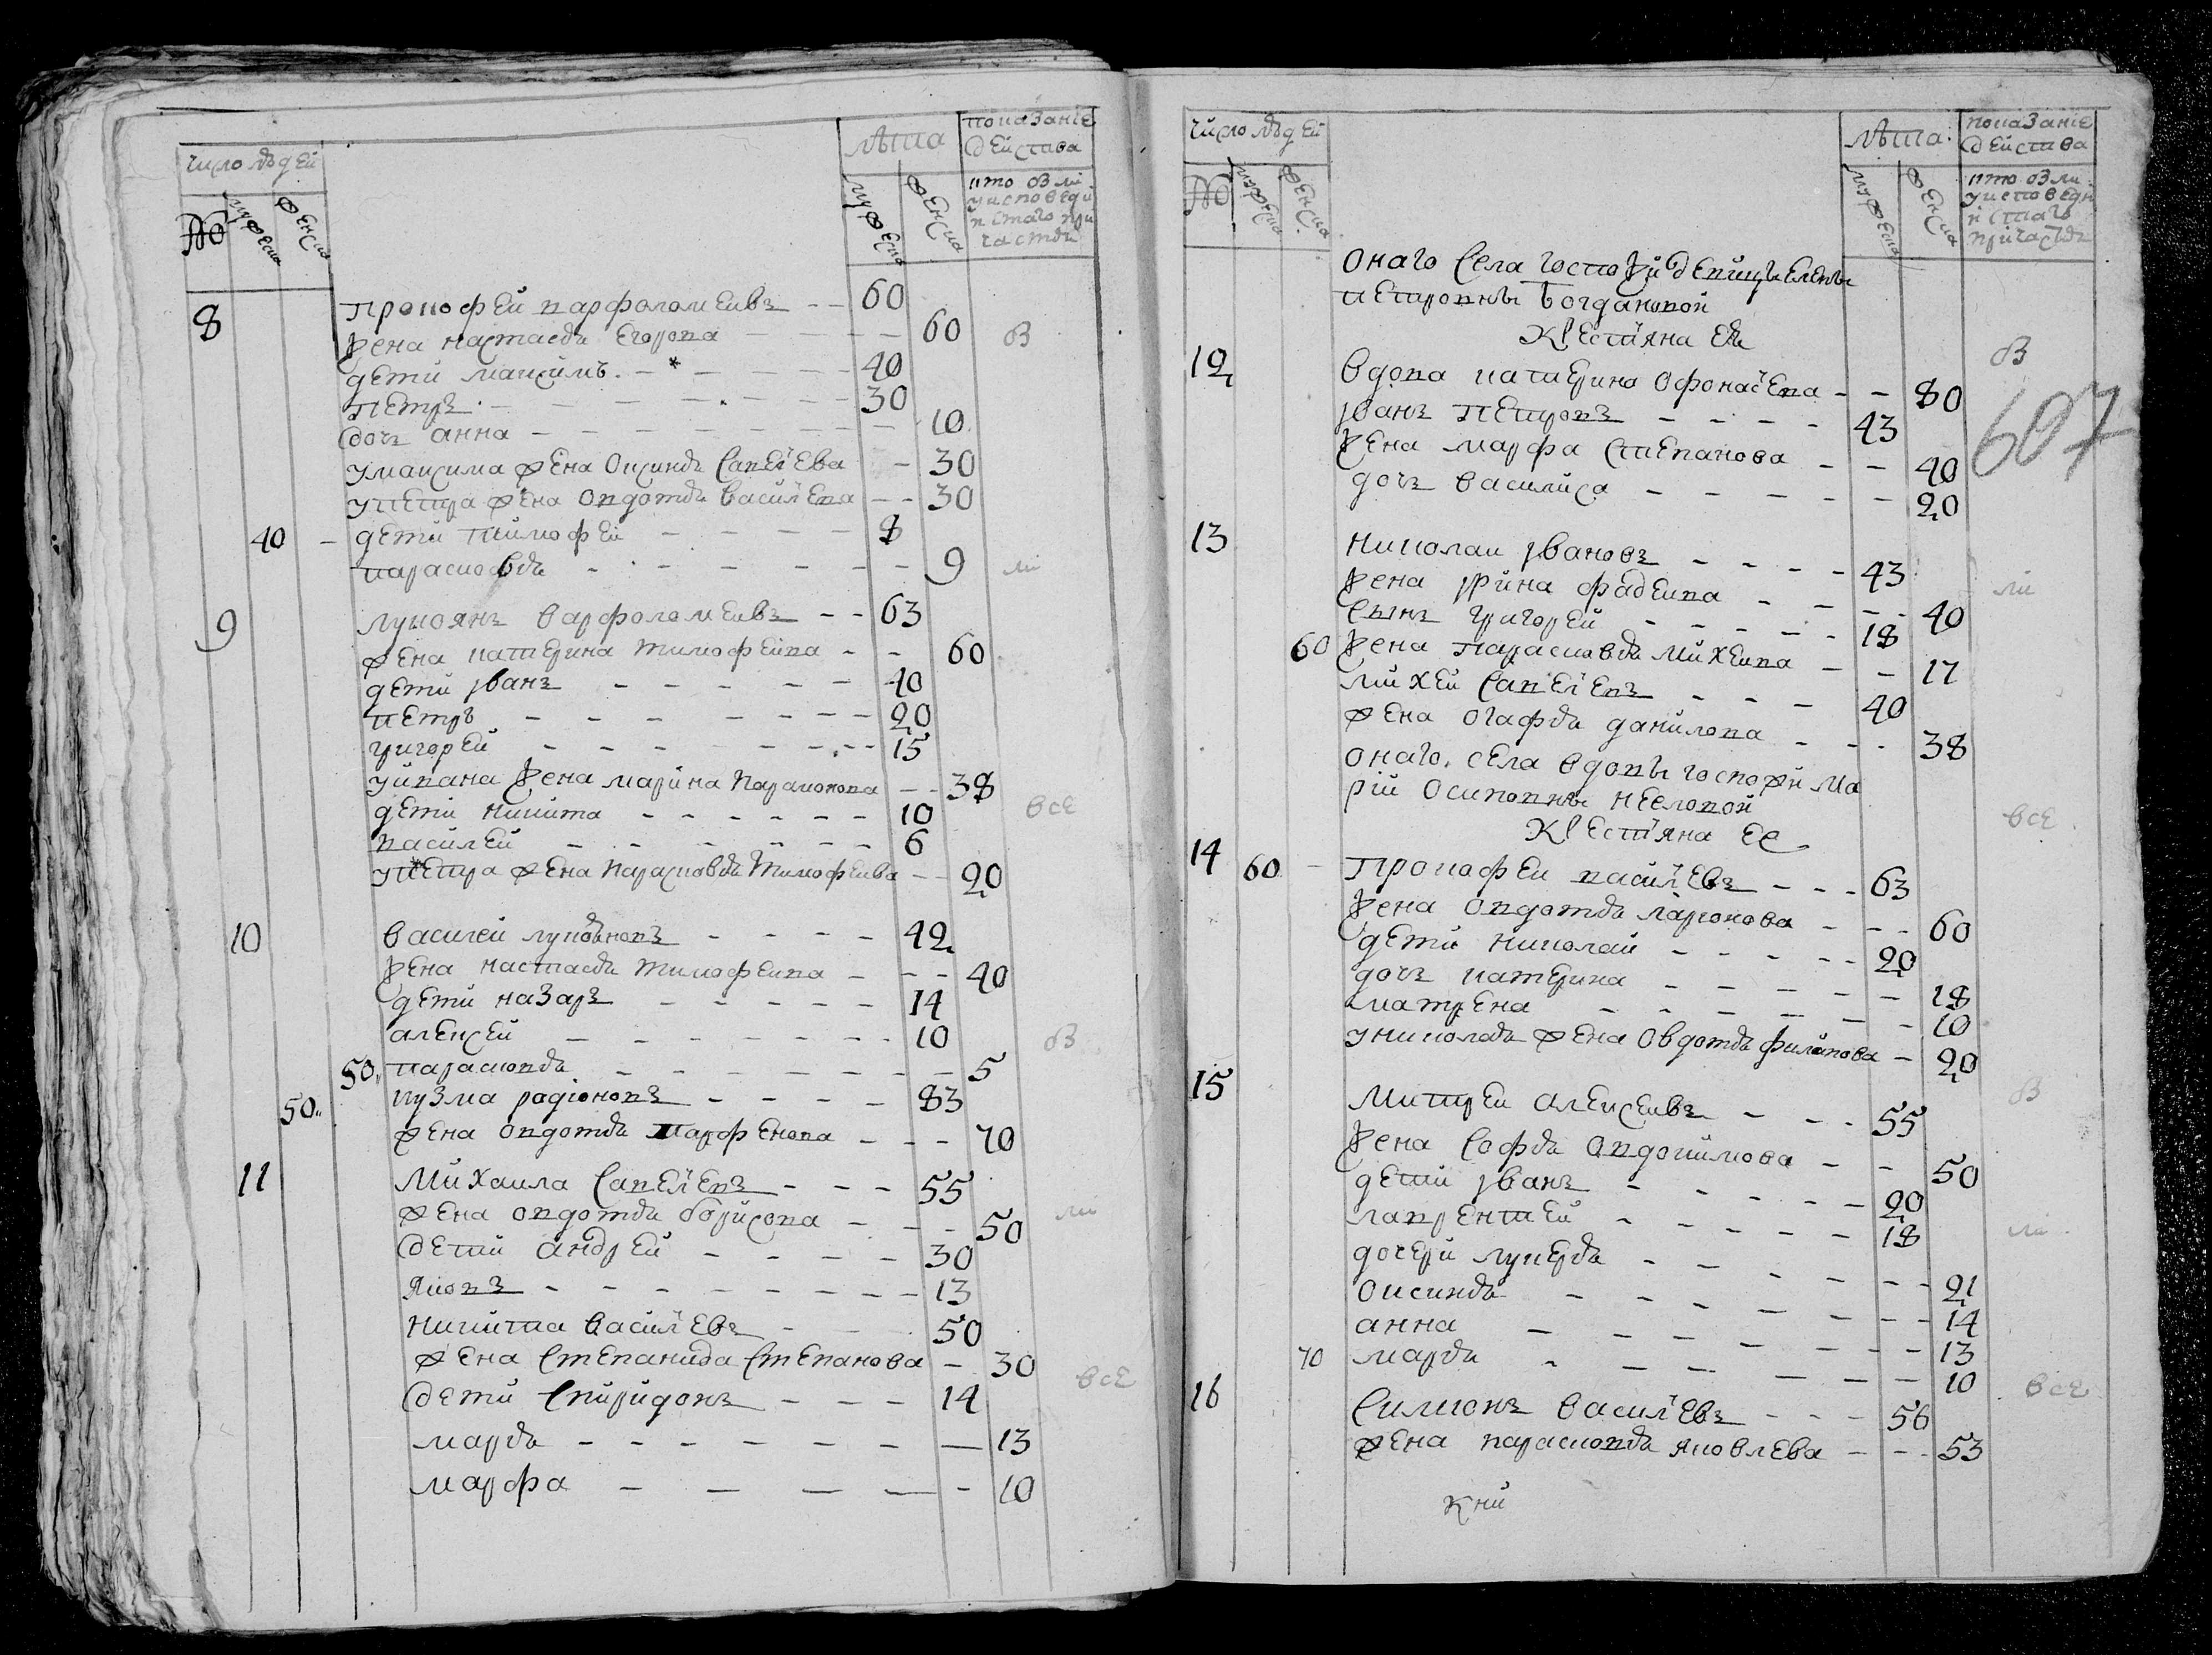 число людей
№ мужеска женска
лѣта
мужеска женска
показание действа
кто были у исповеди и стаго причастия
8 прокофей варфоломеивъ - - 60
жена настасья егорова - - 60
дети максимъ - - 40
петръ - - 30
дочь анна - - 10
у максима жена оксинья савельева - 30
у петра жена овдотья васильева - - 30
40 - дети тимофей - - 8
парасковья - - 9
9 лукоянъ варфоломеивъ - - 63
жена катерина тимофеива - - 60
дети иванъ - - 40
петръ - - 20
григорей - - 15
у ивана жена марина парамонова - - 38
дети никита - - 10
василей - - 6
у петра жена парасковья тимофеива - - 20
10 василей лукьяновъ - - 42
жена настасья тимофеива - - 40
дети назаръ - - 14
алексей - - 10
50 парасковья - - 5
50 кузма радионовъ - - 83
жена овдотья парфенова - - 70
11 михаила савельевъ - - 55
жена овдотья борисова - - 50
дети андрей - - 30
яковъ - - 13
никита васильевъ - 50
жена степанида степанова - 30
дети спиридонъ - - 14
марья - - 13
марфа - - 10
были все
были все
число людей
№ мужеска женска
лѣта
мужеска женска
показание действа
кто были у исповеди и стаго причастия
607
онаго села госпожи девицы елены
петровны богдановой
крестьяна ея
12 вдова катерина офонасева - - 80
иванъ петровъ - - 43
жена марфа степанова - - 40
дочь василиса - - 20
13 николаи ивановъ - - 43
жена ирина фадеива - - 40
сынъ григорей - - 18
60 жена парасковья михеива - - 17
михей савельевъ - - 40
жена огафья данилова - - 38
онаго села вдовы госпожи ма
рии осиповны неѣловой
крестьяна ее
14 60 - прокофеи васильевъ - - 63
жена овдотья ларионова - - 60
дети николаи - - 20
дочь катерина - - 18
матрена - - 10
у николая жена овдотья филипова - 20
15 митреи алексеивъ - - 55
жена софья овдокимова - - 50
дети иванъ - - 20
лаврентей - - 18
дочери лукерья - - 21
оксинья - - 14
анна - - 13
70 марья - - 10
16 симионъ васильевъ - - 56
жена парасковья яковлева - - 53
были все
были все
кни